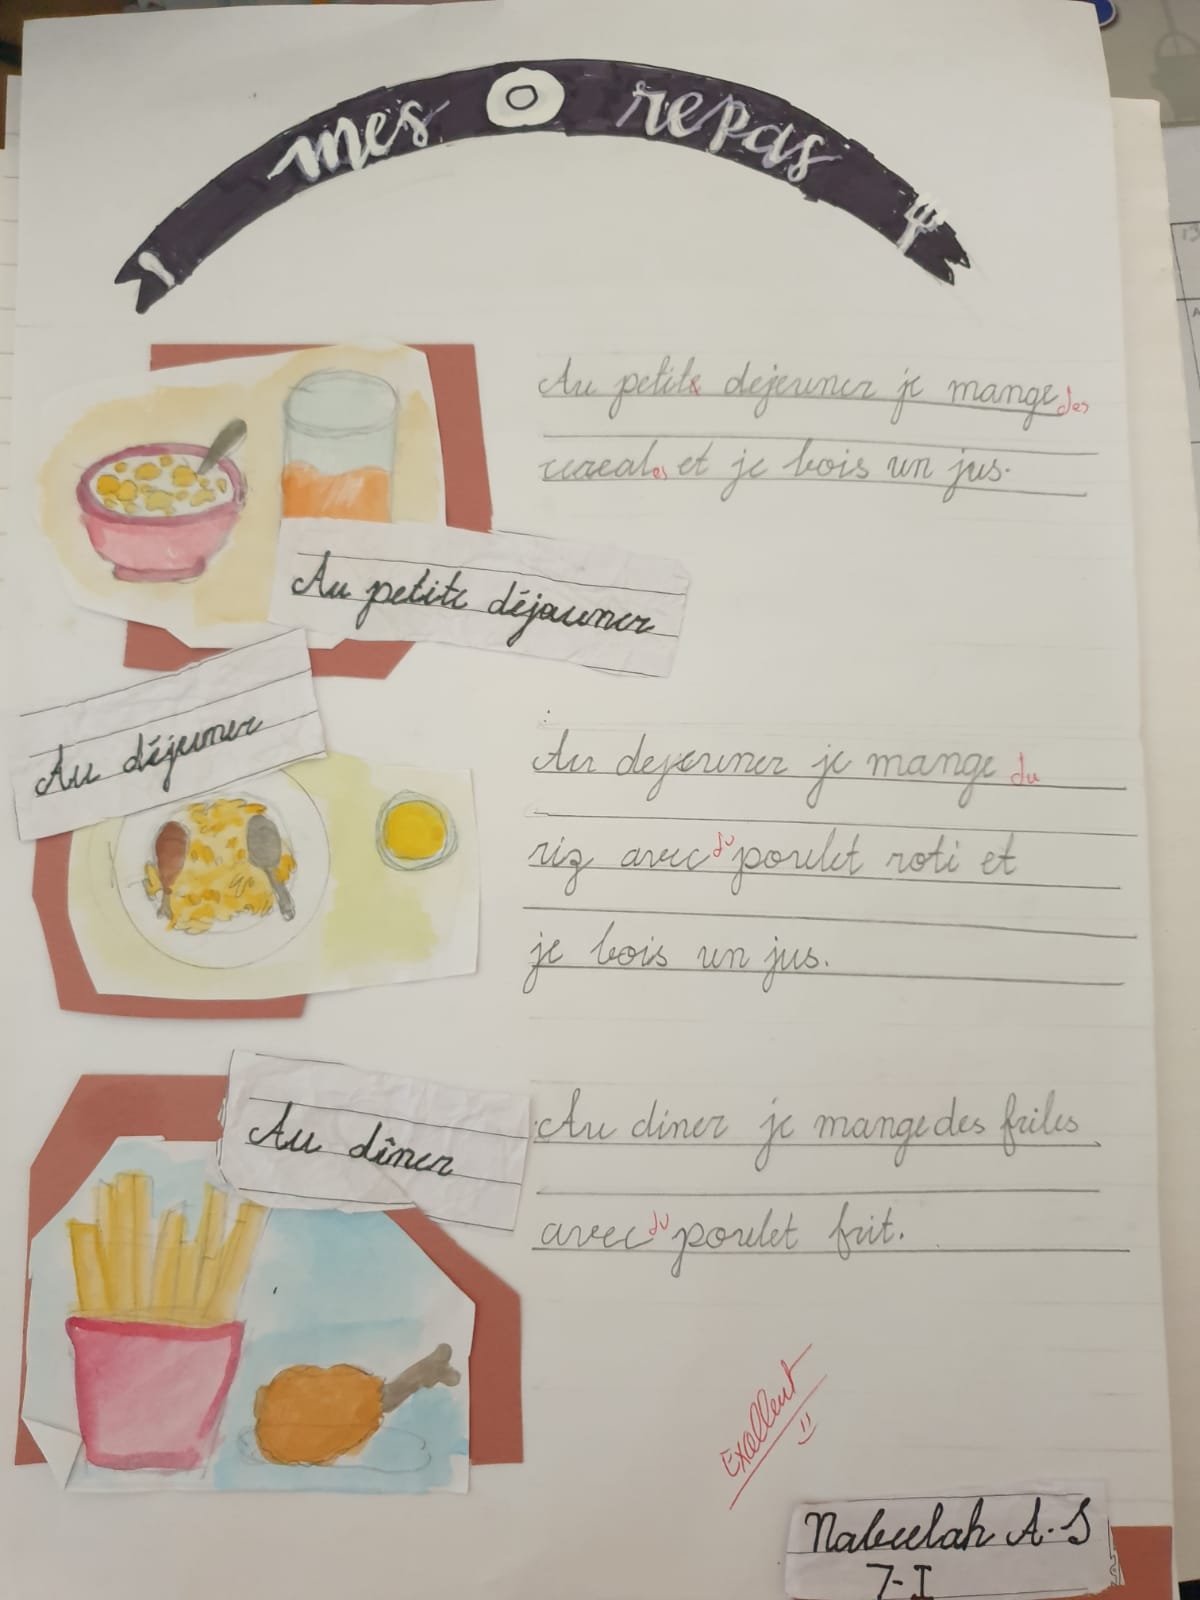 mes repas
Au petite dejeuner je mange des
cereales et je bois un jus.
Au petite déjauner
Au déjeuner
Au dejeuner je mange du
riz avec du poulet roti et
je bois un jus.
Au dîner
Au diner je mange des frites
avec du poulet frit.
Excellent
Nabeelah A.S
7-I